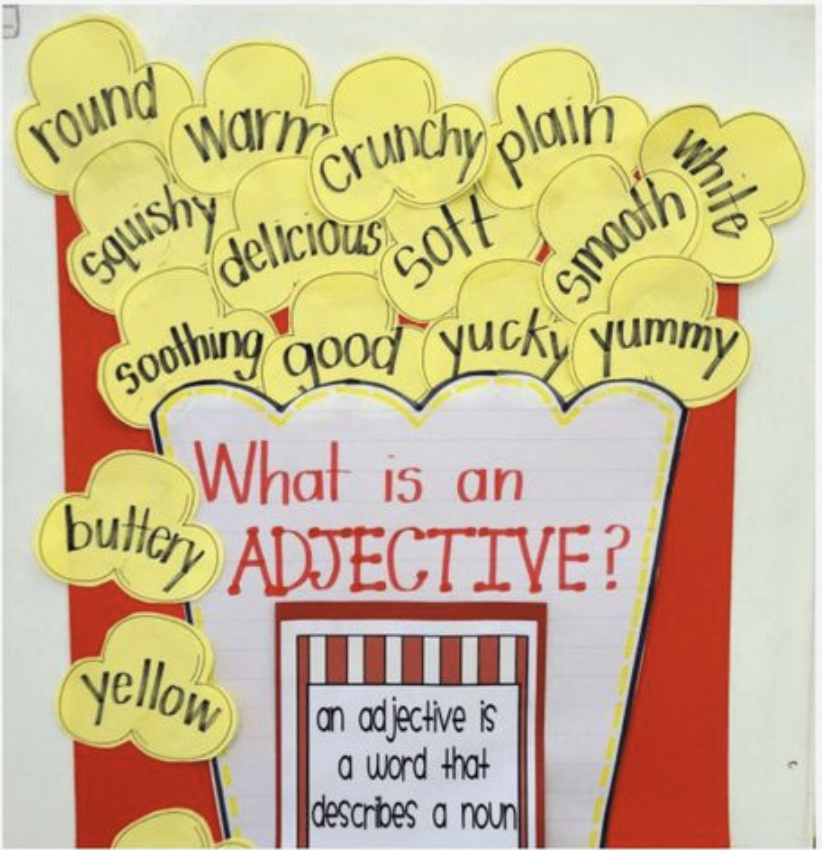 round
warm
crunchy
plain
white
squishy
delicious
soft
smooth
soothing
good
yucky
yummy
What is an
ADJECTIVE?
buttery
yellow
an adjective is
a word that
describes a noun